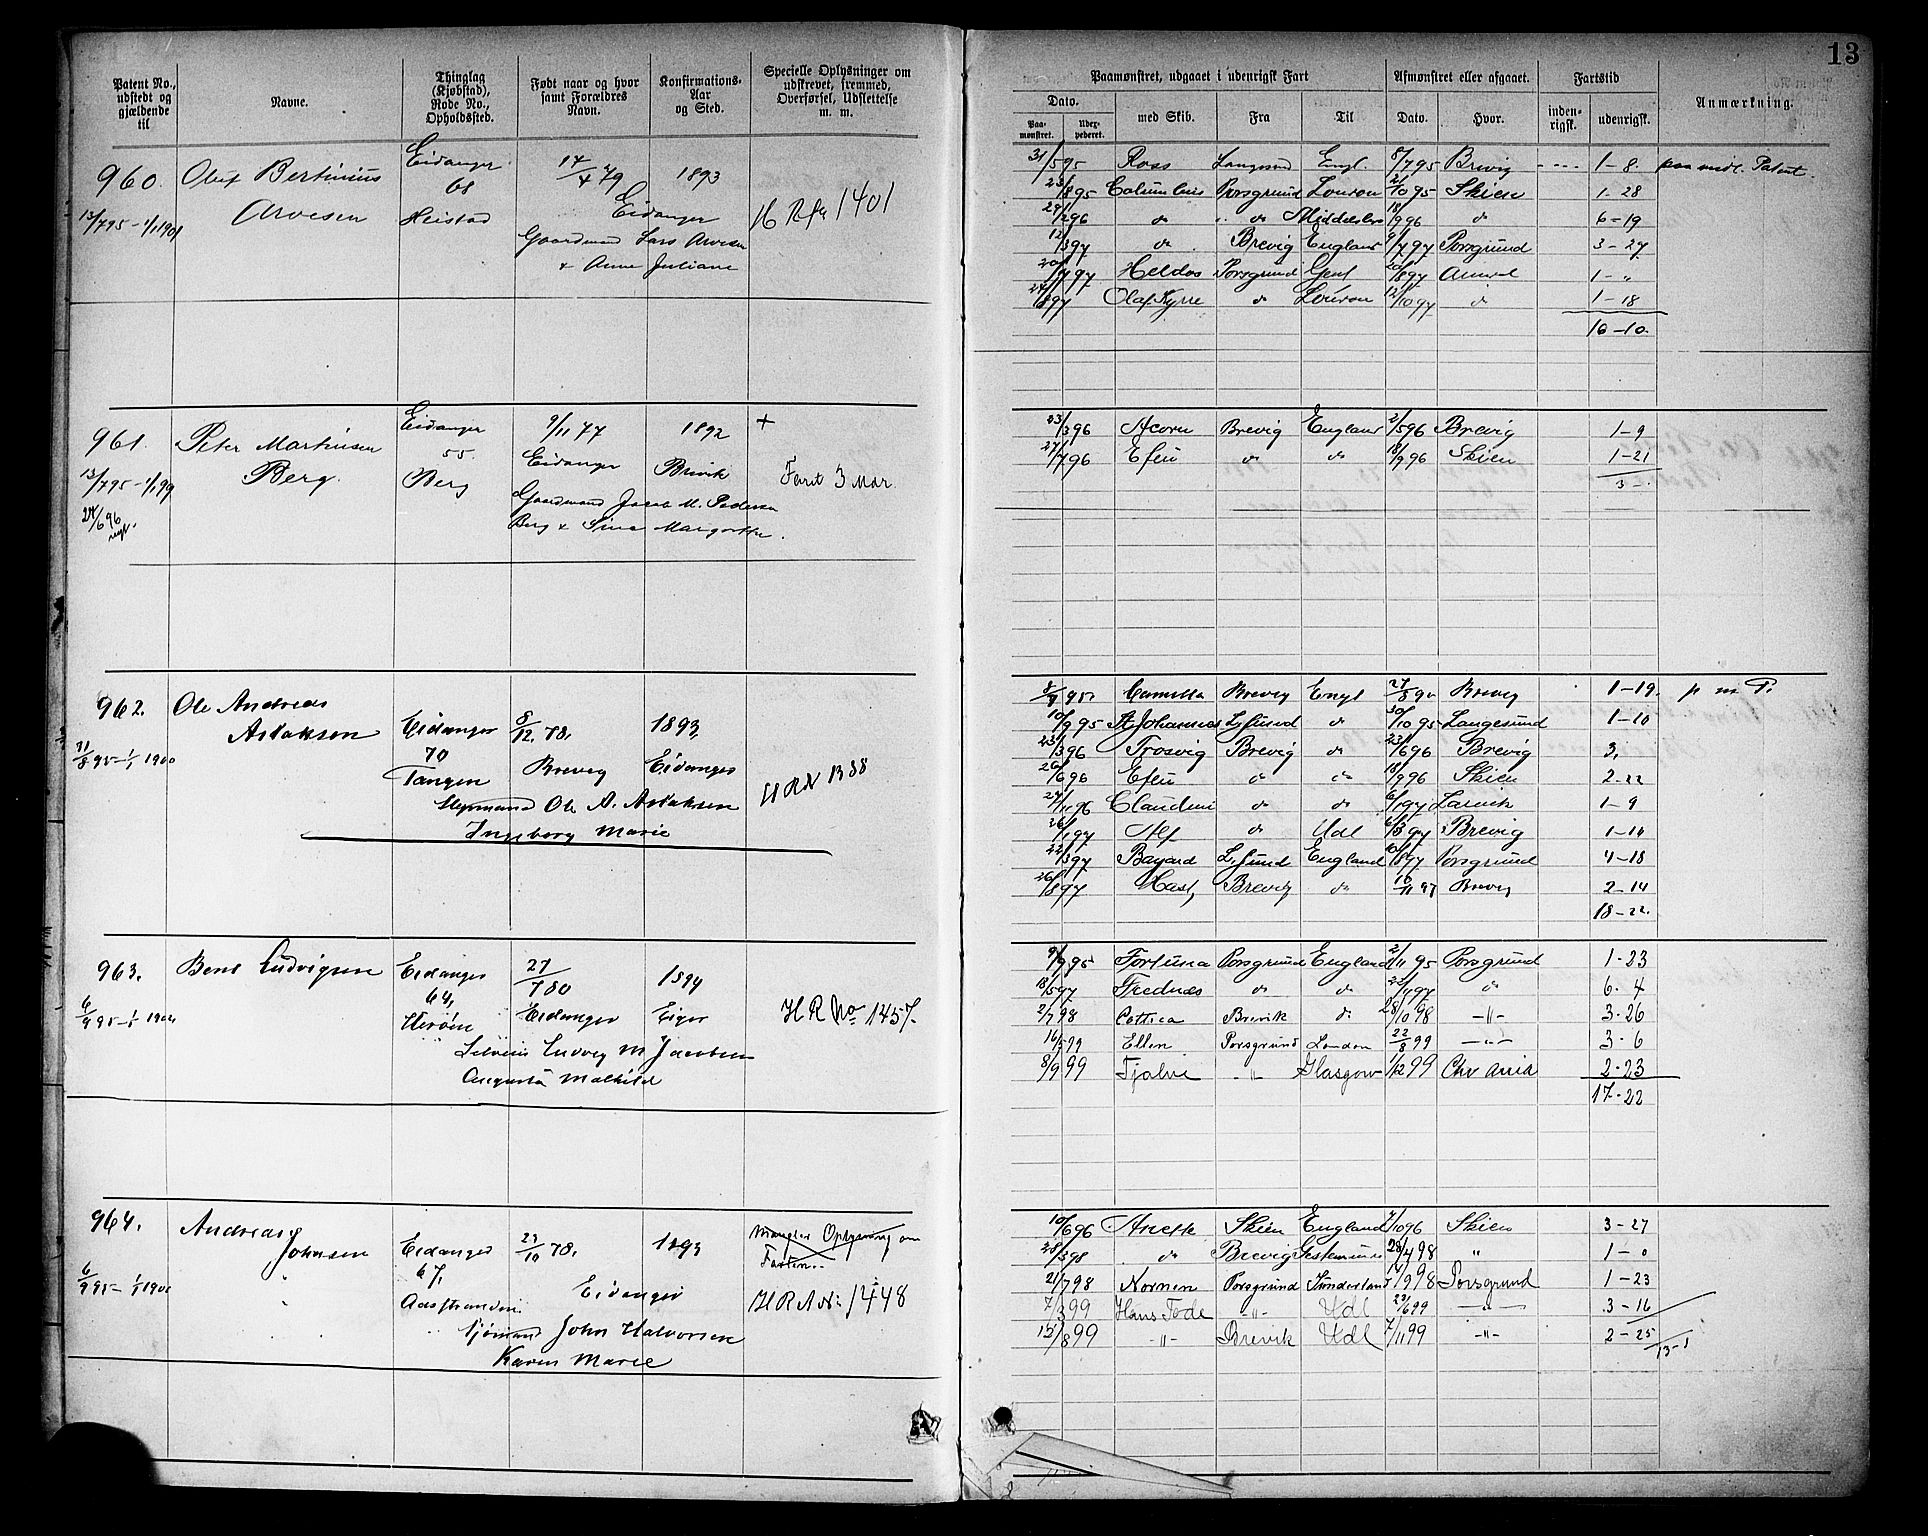 13
Patent No., udstedt og gjældende til
Navne.
Thinglag (Kjøbstad), Rode No., Opholdssted.
Født naar og hvor samt Forældres Navn.
Konfirmations- Aar og Sted.
Specielle Oplysninger om udskrevet, fremmed, Overførsel, Udslettelse m. m.
Paamønstret, udgaaet i udenrigsk Fart
Afmønstret eller afgaaet.
Fartstid
Anmærkning.
Dato.
Paa- mønstret.
med Skib.
Fra
Til
Dato.
Hvor.
inden- rigsk.
udenrigsk.
960. Olaf Bertinius Eidanger 17/4 79 1893
68
Arvesen Heistad Eidanger H R 1401
13/7 95 - 1/1 1901
Gaardmand Lars Arvesen
& Anne Juliane
31/5 95 Ross Langesund Engl. 8/7 95 Brevig 1-8. paa midl. Patent.
23/8 95 Columbus Porsgrund London 2/10 95 Skien 1-28
29/2 96 do do 18/9 96 do 6-19
12/3 97 do Brevig England 9/7 97 Porsgrund 3-27
20/7 97 Heldos Porsgrund Gent 20/8 97 1-"
24/8 97 Olaf Kyrre do London 12/10 97 do 1-18
16-10.
961. Peter Martinsen Eidanger 9/11 77 1892 +
Berg. 55. Eidanger Brevik
13/7 95 - 1/1 99 Berg Faret 3 Mdr.
24/6 96 Gaardmand Jacob M. Pedersen
Berg & Sina Margrethe.
23/3 96 Acorn Brevig England 2/5 96 Brevig 1-9
27/7 96 Efeu do do 18/9 96 Skien 1-21
3-.
962. Ole Andreas
Aslaksen Eidanger 8/12 78. 1893
31/8 95 - 1/1 1900 70 Brevig Eidanger
Tangen H R N 1388
Ole A. Aslaksen
Ingeborg Marie
95 Camilla Brevig Engl 27/8 95 Brevig 1-19. p m P.
10/9 95 A Johannes L,sund do 30/10 95 Langesund 1-10
23/3 96 Frosvig Brevig do 23/6 96 Brevig 3,
26/6 96 Efeu do do 18/9 96 Skien 2-22
27/11 96 do do 6/1 97 Larvik 1-9
26/1 97 Alf do Udl 6/3 97 Brevig 1-10
22/3 97 Bayard L,sund England 10/8 97 Porsgrund 4-18
26/8 97 Brevig do 10/11 97 Brevig 2-14
18-22.
963. Bent Ludvigsen Eidanger 27/7 80 1894
64, Eidanger
6/9 95 - 1/1 1902 Herøen H R No 1457.
Ludvig M Jacobsen
Augusta Mathilde
9/9 95 Fortuna Porsgrund England 2/11 95 Porsgrund 1-23
18/5 97 Frednæs do do do 6-4
2/7 98 Cottica Brevik do 28/10 98 -"- 3-26
16/5 99 Ellen Porsgrund London 22/8 99 -"- 3-6
8/9 99 Tjalve -"- Glasgow 1/12 99 Chr ania 2-23
17-22
964. Andreas
Johnsen Eidanger 23/10 78. 1893 Mangler Oplysning om Farten.
6/9 95 - 1/1 1900 67, Eidanger
Aasstranden H R A N: 1448
Sjømand John Halvorsen
Karen Marie
10/6 96 Anette Skien England 7/10 96 Skien 3-27
28/3 98 do Brevig Gestemunde 28/4 98 " 1-0
21/7 98 Nornen Porsgrund Sunderland 14/9 98 Porsgrund 1-23
7/3 99 Hans Tode -"- Udl 23/6 99 -"- 3-16
12/8 99 -"- Brevik Udl 7/11 99 -"- 2-25
13-1